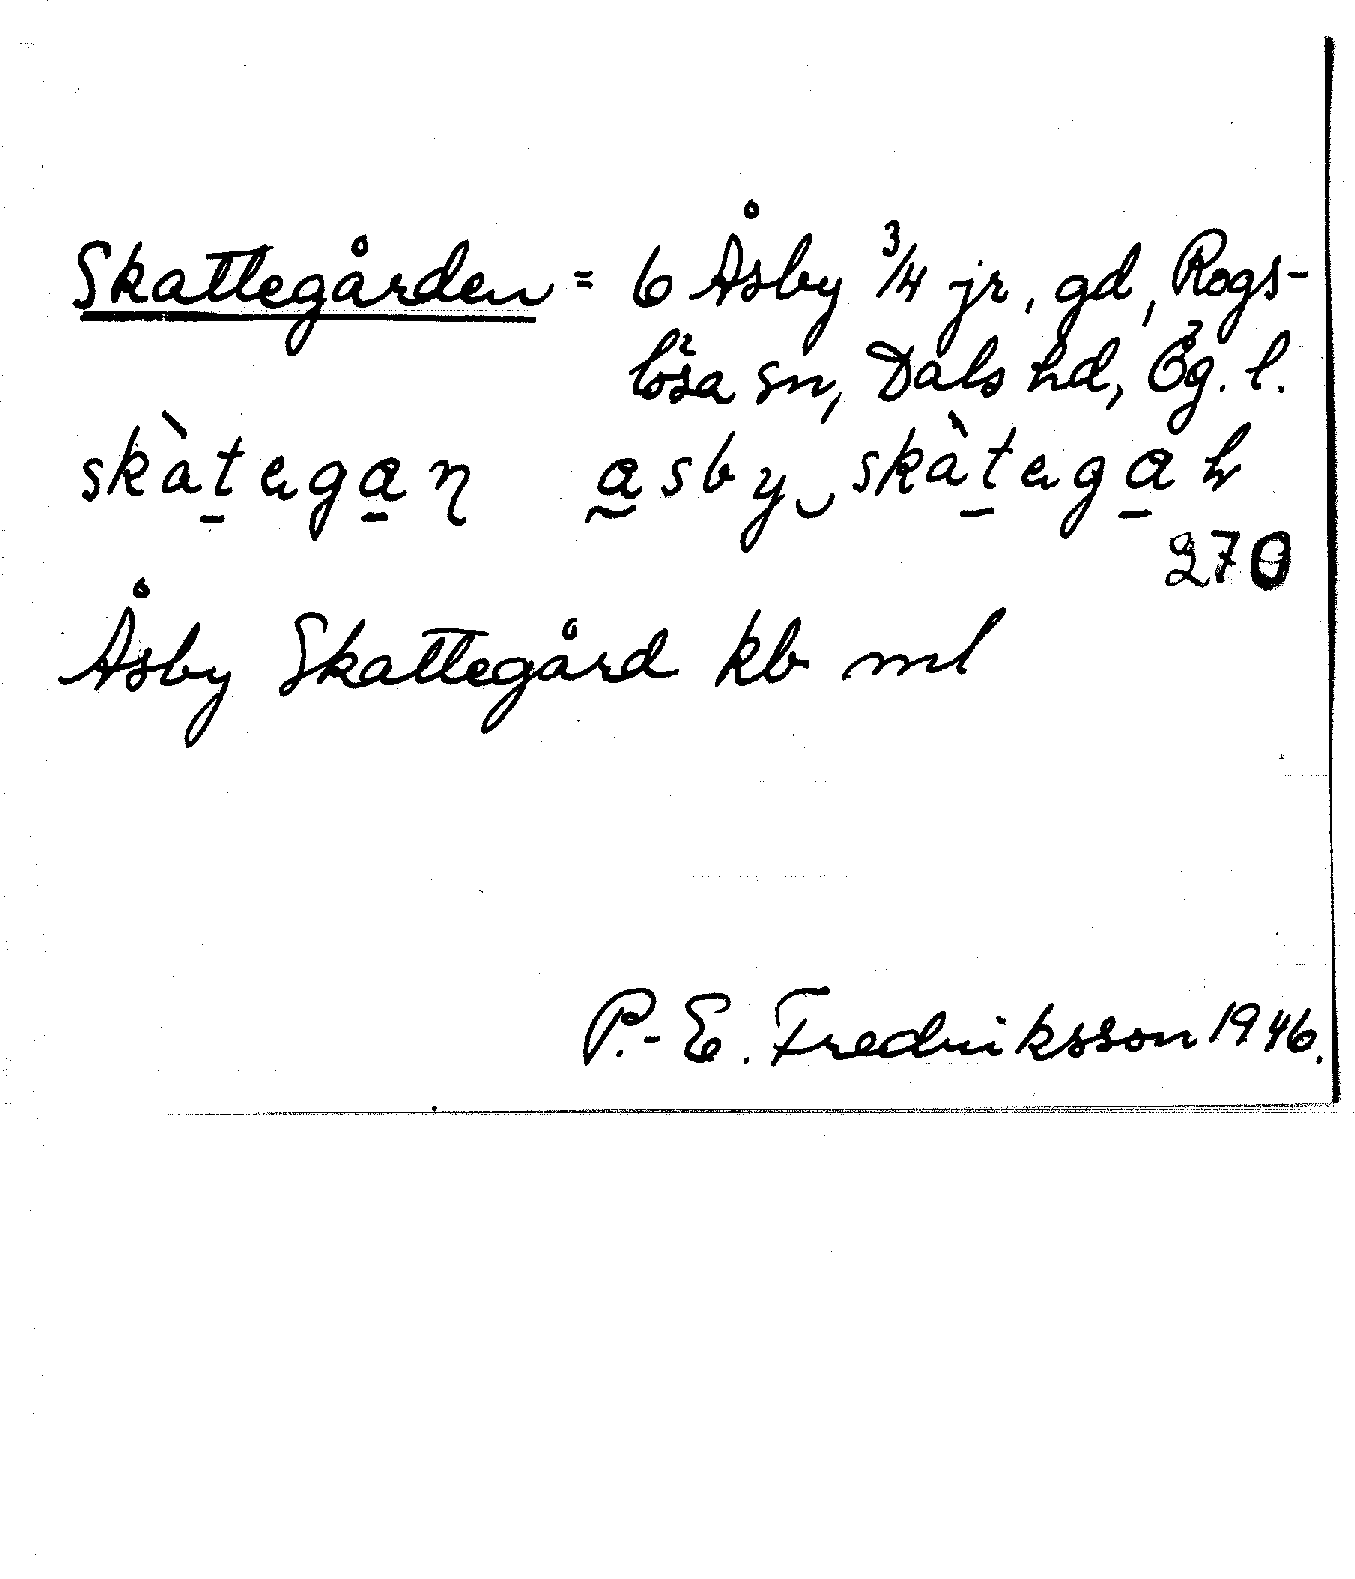 Skattegården = 6 Åsby 3/4 jr, gd, Rogs-
lösa sn, Dals hd, Ög. l.
skàtegan asby skàtega
270
Åsby Skattegård kb ml
P.-E. Fredriksson 1946.